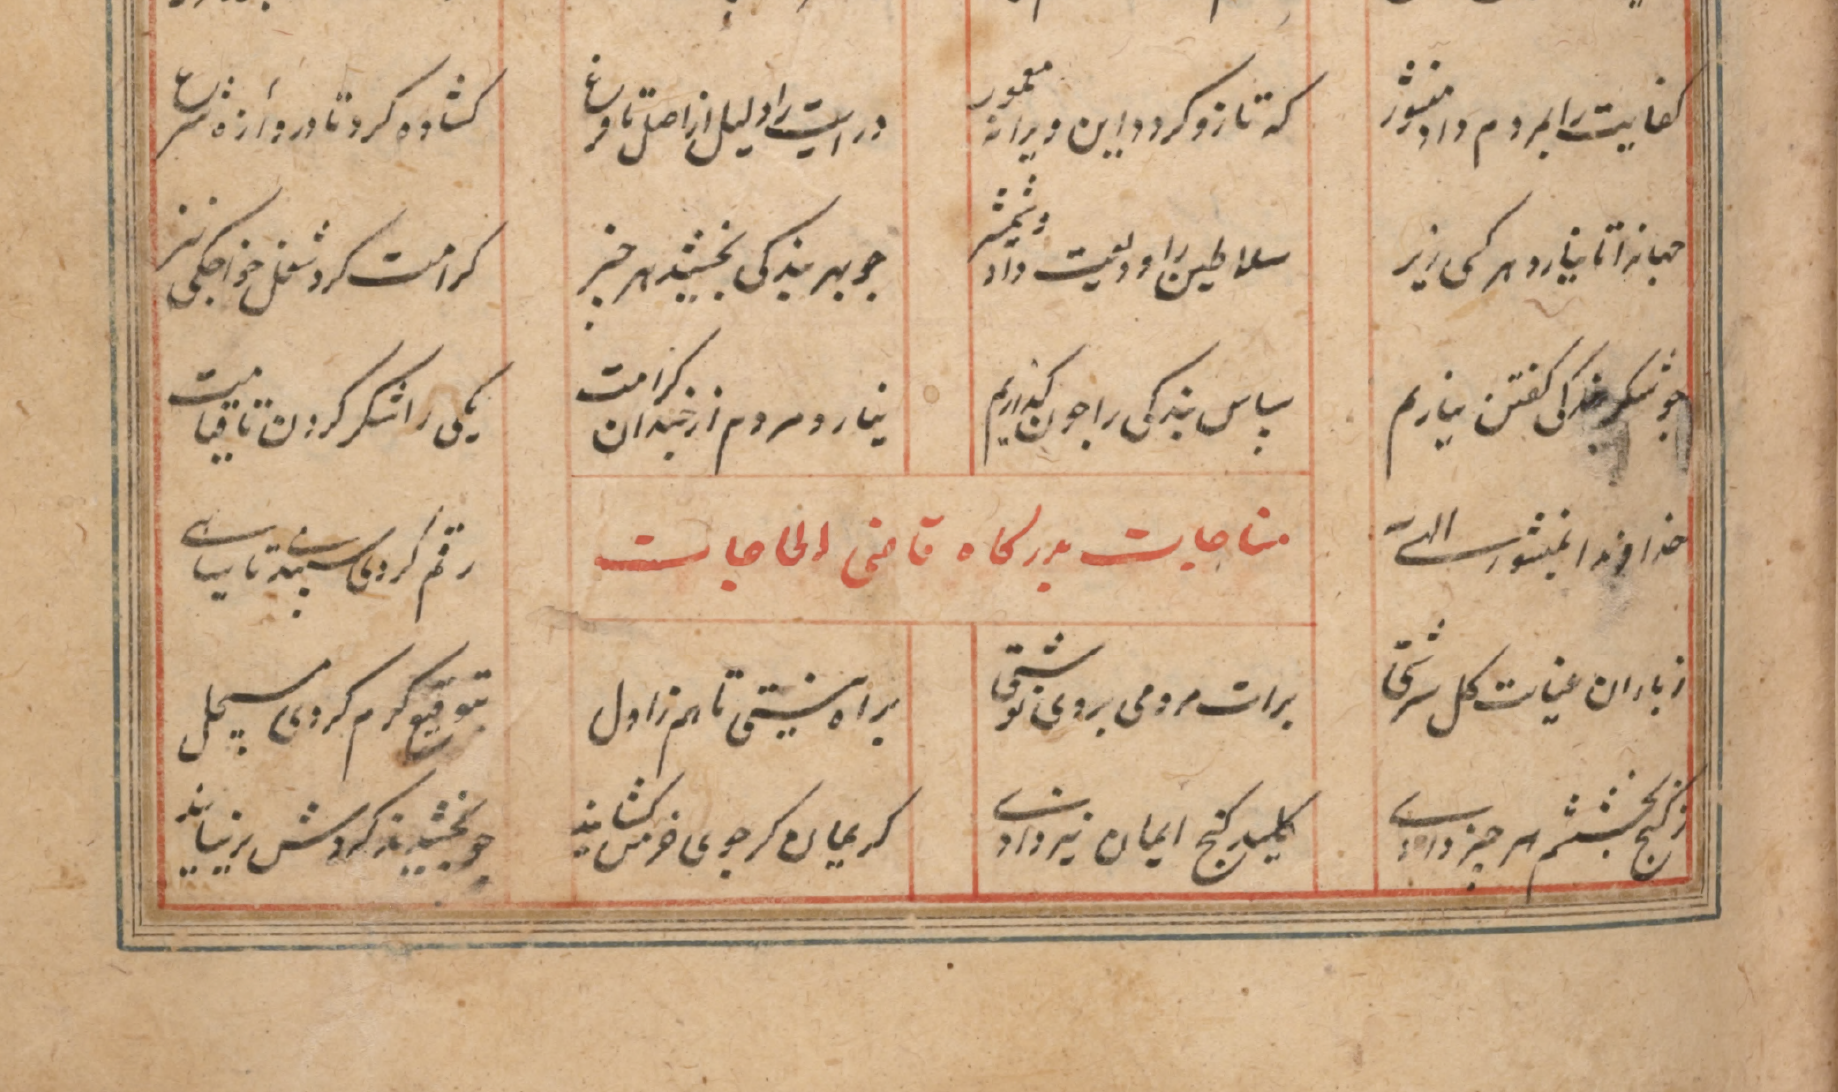 کفایت را بمردم داد منشور
که تا زو کردد این ویرانه معمور
درایت را دلیل از اصل تا فرع
کشاده کرد تا دروازه شرع
جهانرا تا نیارد هر کسی زیر
سلاطین را ودیعت داد شمشیر
جو بهر بندکی بخشید هر چیز
کرامت کرد شغل خواجکی نیز
جو شکر کفتن نیاریم
سپاس بندکی را جون کذاریم
نیارد مردم از چندان کرامت
یکی را شکر کردن تا قیامت
مناجات بدرکاه قاضی الحاجات
خداوندا بمنشور الهی
رقم کردی سپید تا سیاهی
ز باران عنایت کل سرشتی
برات مردمی بر وی نوشتی
براه نیستی تا هم ز اول
بتوقیع کرم کردی مسجل
ز کنج بخششم هر چیز دادی
کلید کنج ایمان نیز دادی
کریمان کر جوی خرمن کشایند
جو بخشیدند کردش بر نیایند